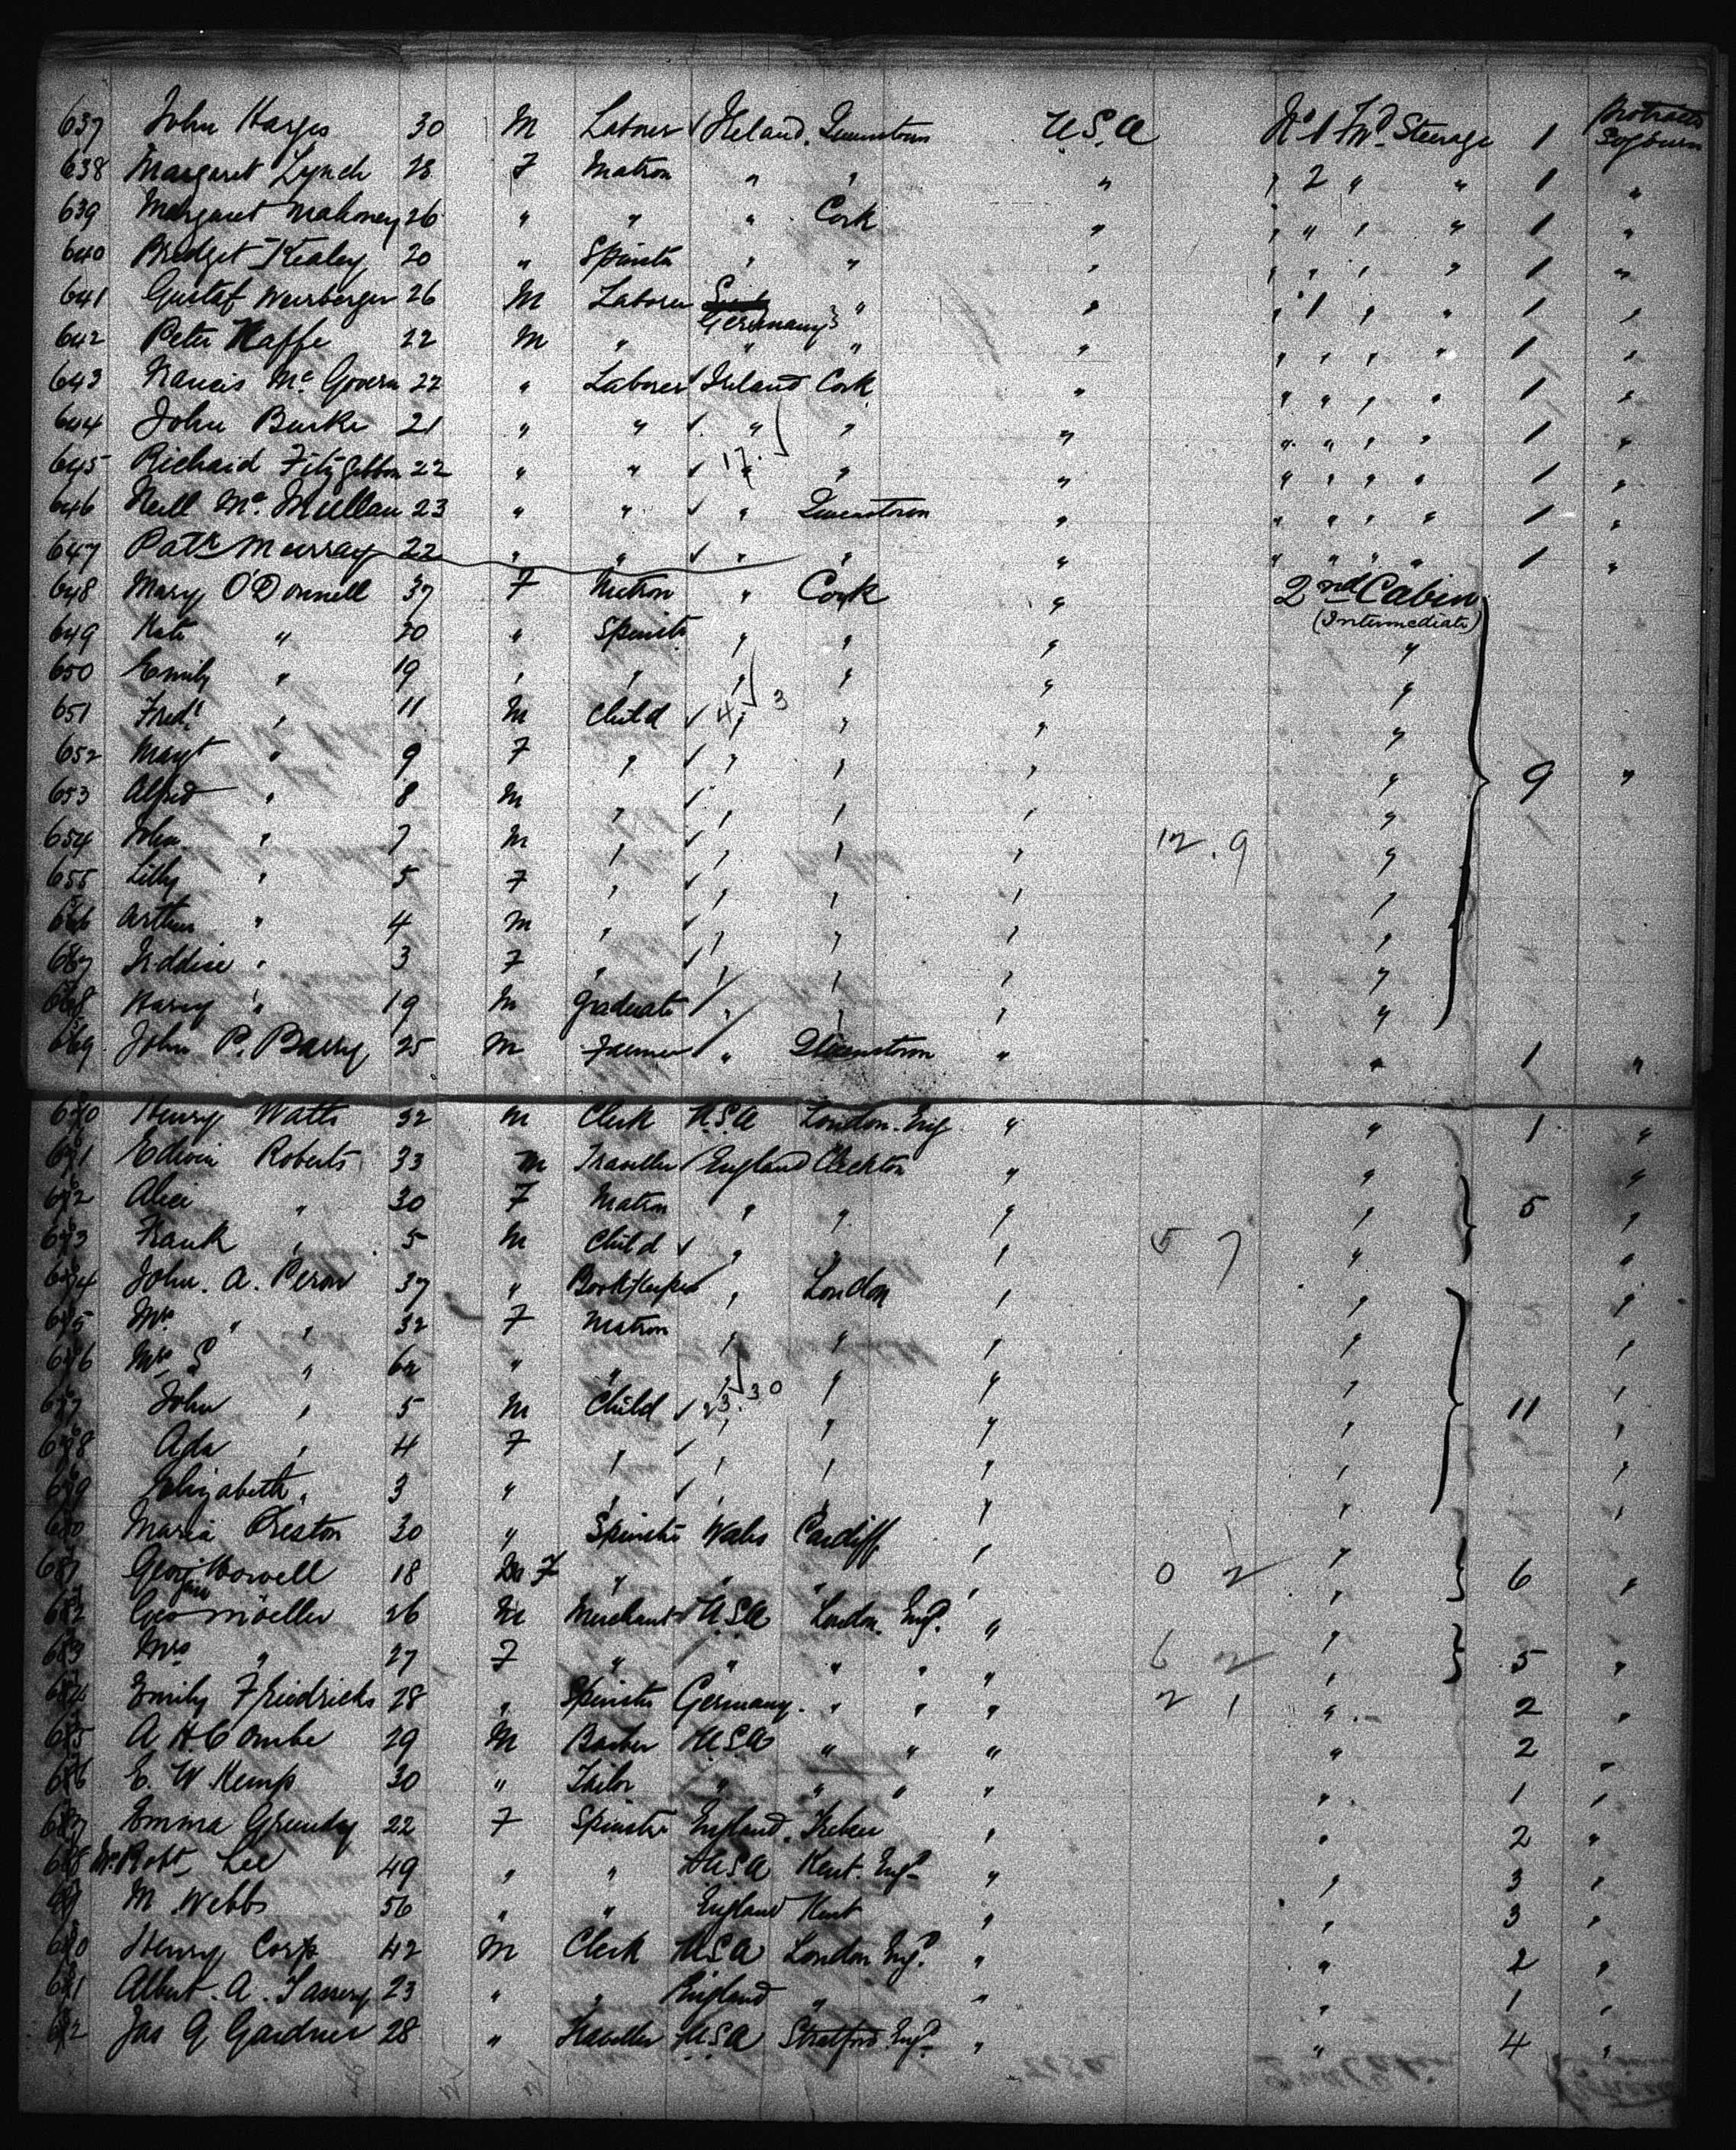 637 John Harges 30 M Laborer √ Ireland. Queenstown U.S.A No 1 Fwd Steerage 1 Protracted Sojourn
638 Margaret Lynch 28 F Matron " " " " 2 " " 1 "
639 Margaret Mahoney 26 " " " Cork " " " " " 1 "
640 Bridget Kealey 20 " Spinster " " " " " " " 1 "
641 Gustaf 26 M Laborer Germany } " " " 1 " " 1 "
642 Peter Haffe 22 M " " " " " " " " 1 "
643 Francis Mc Govern 22 " Laborer √ Ireland Cork " " " " " 1 "
644 John Burke 21 " " √ " " " " " " " 1 "
645 Richard Fitzgibbon 22 " " √ 17. " " " " " " " 1 "
646 Neill Mc. Mullan 23 " " √ " Queenstown " " " " " 1 "
647 Patk Murray 22 " " √ " " " " " " " 1 "
648 Mary O'Donnell 37 F Matron " Cork " 2nd Cabin (Intermediate)
649 Kate " 20 " Spinster " " " "
650 Emily " 19 " " " " " "
651 Fredk " 11 M Child √ 4 3 " " " "
652 Margt " 9 F " √ " " " " 9 "
653 Alfred " 8 M " √ " " " "
654 John " 7 M " √ " " " 12. 9 "
655 Lilly " 5 F " √ " " " "
656 Arthur " 4 M " √ " " " "
657 " 3 F " √ " " " "
658 Harry " 19 M Graduate √ " " " "
659 John P. Barry 25 M Farmer √ " Queenstown " " 1 "
660 Henry Watts 32 M Clerk U.S.A London. Eng " " 1 "
661 Edwin Roberts 33 M Traveller √ England " " "
662 Alice " 30 F Matron " " " " 5 "
663 Frank " 5 M Child √ " " " 5 7 " "
664 John. A. Peron 37 " Bookkeeper √ " London " " "
665 Mrs " " 32 F Matron " " " " "
666 Mrs S " 62 " " " " " " "
667 John " 5 M Child √ 23. 30 " " " " 11 "
668 Ada " 4 F " √ " " " " "
669 Elizabeth " 3 " " √ " " " " "
670 Maria Preston 30 " Spinster Wales Cardiff " "
671 Howell 18 F " " " " 0 2 " 6 "
672 Geo Moeller 26 M Merchant √ U.S.A London. Engd. " "
673 Mrs " 27 F " " " " " 6 2 " 5 "
674 Emily Friedricks 28 " Spinster Germany. " " " 2 1 " 2 "
675 A H Combe 29 M Barber U.S.A " " " " 2 "
676 E. W Kemp 30 " Tailor " " " " " 1 "
677 Emma Grundy 22 F Spinster England. " " 2 "
678 Mrs Robt Lee 49 " " U.S.A Kent. Engd " " 3 "
679 M Webbs 56 " " England Kent " " 3 "
680 Henry Corp 42 M Clerk U.S.A London Engd. " " 2 "
681 Albert. A. 23 " " England " " " 1 "
682 Jas G Gardner 28 " Traveller U.S.A Stratford Engd " " 4 "